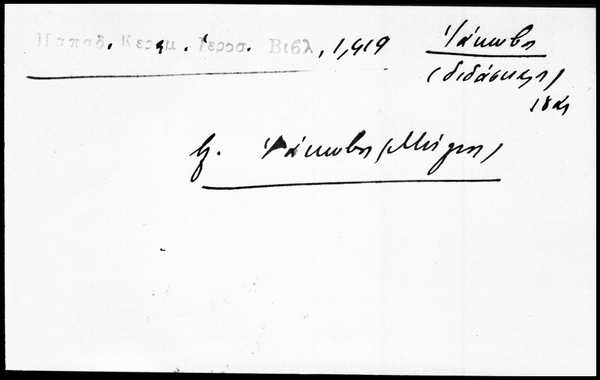 Παπαδ. Κεραμ. Ιεροσ. Βιβλ, 1,419
Ἰάκωβος
(διδάσκαλος)
βλ. Ἰάκωβος (Μάγνης)